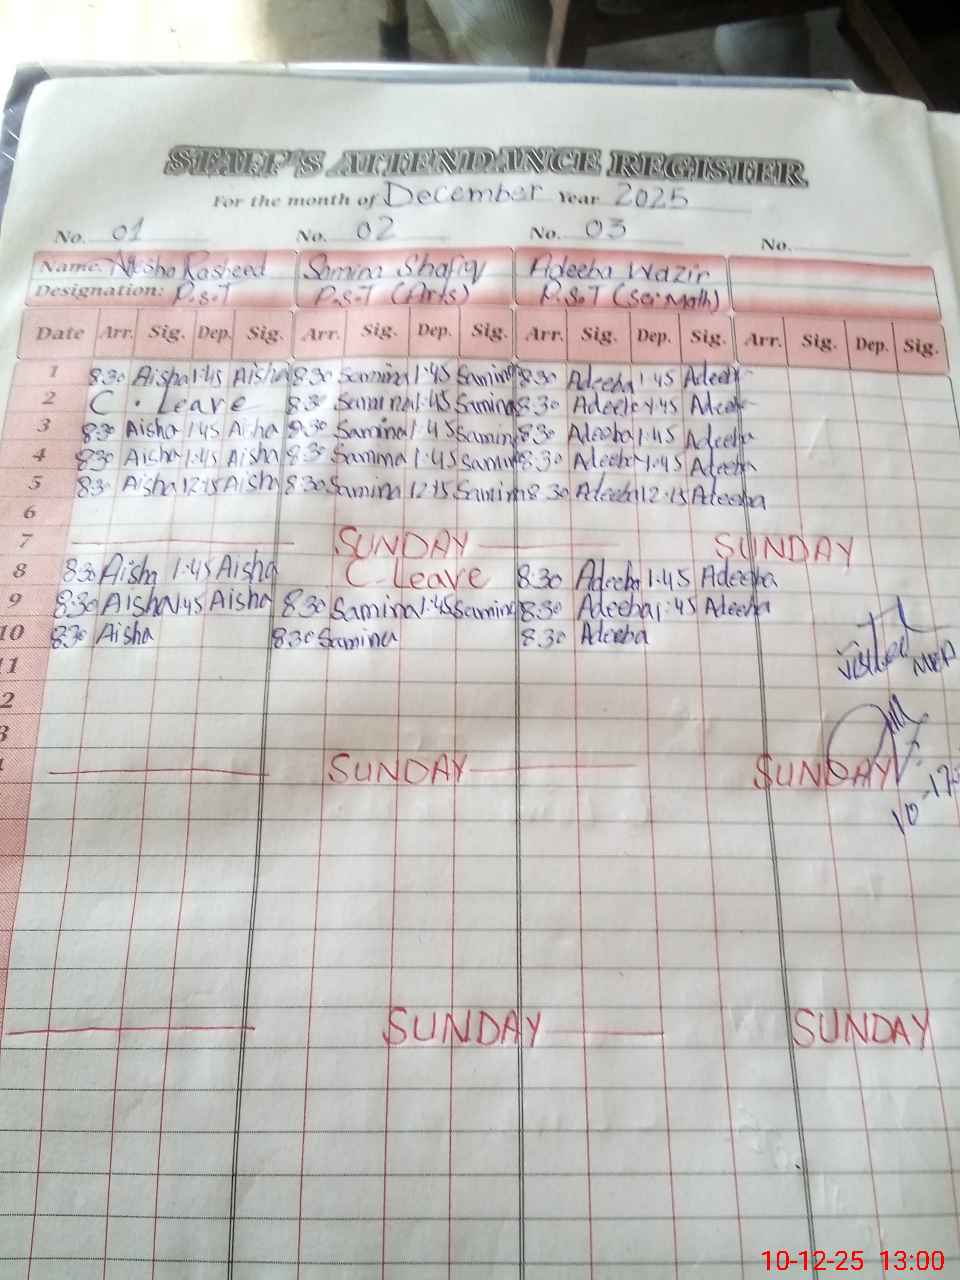 STAFF'S ATTENDANCE REGISTER
For the month of December Year 2025
No. 01 No. 02 No. 03 No.
Name: Aisha Rasheed Samina Shafiq Adeeba Wazir
Designation: P.S.T P.S.T (Arts) P.S.T (Sci-Math)
Date Arr. Sig. Dep. Sig. Arr. Sig. Dep. Sig. Arr. Sig. Dep. Sig. Arr. Sig. Dep. Sig.
1 8:30 Aisha 1:45 Aisha 8:30 Samina 1:45 Samina 8:30 Adeeba 1:45 Adeeba
2 C. Leave 8:30 Samina 1:45 Samina 8:30 Adeeba 1:45 Adeeba
3 8:30 Aisha 1:45 Aisha 8:30 Samina 1:45 Samina 8:30 Adeeba 1:45 Adeeba
4 8:30 Aisha 1:45 Aisha 8:30 Samina 1:45 Samina 8:30 Adeeba 1:45 Adeeba
5 8:30 Aisha 12:15 Aisha 8:30 Samina 12:15 Samina 8:30 Adeeba 12:15 Adeeba
6
7 SUNDAY SUNDAY
8 8:30 Aisha 1:45 Aisha C-Leave 8:30 Adeeba 1:45 Adeeba
9 8:30 Aisha 1:45 Aisha 8:30 Samina 1:45 Samina 8:30 Adeeba 1:45 Adeeba
10 8:30 Aisha 8:30 Samina 8:30 Adeeba
11 visited
2
3
SUNDAY SUNDAY
10
SUNDAY SUNDAY
10-12-25 13:00